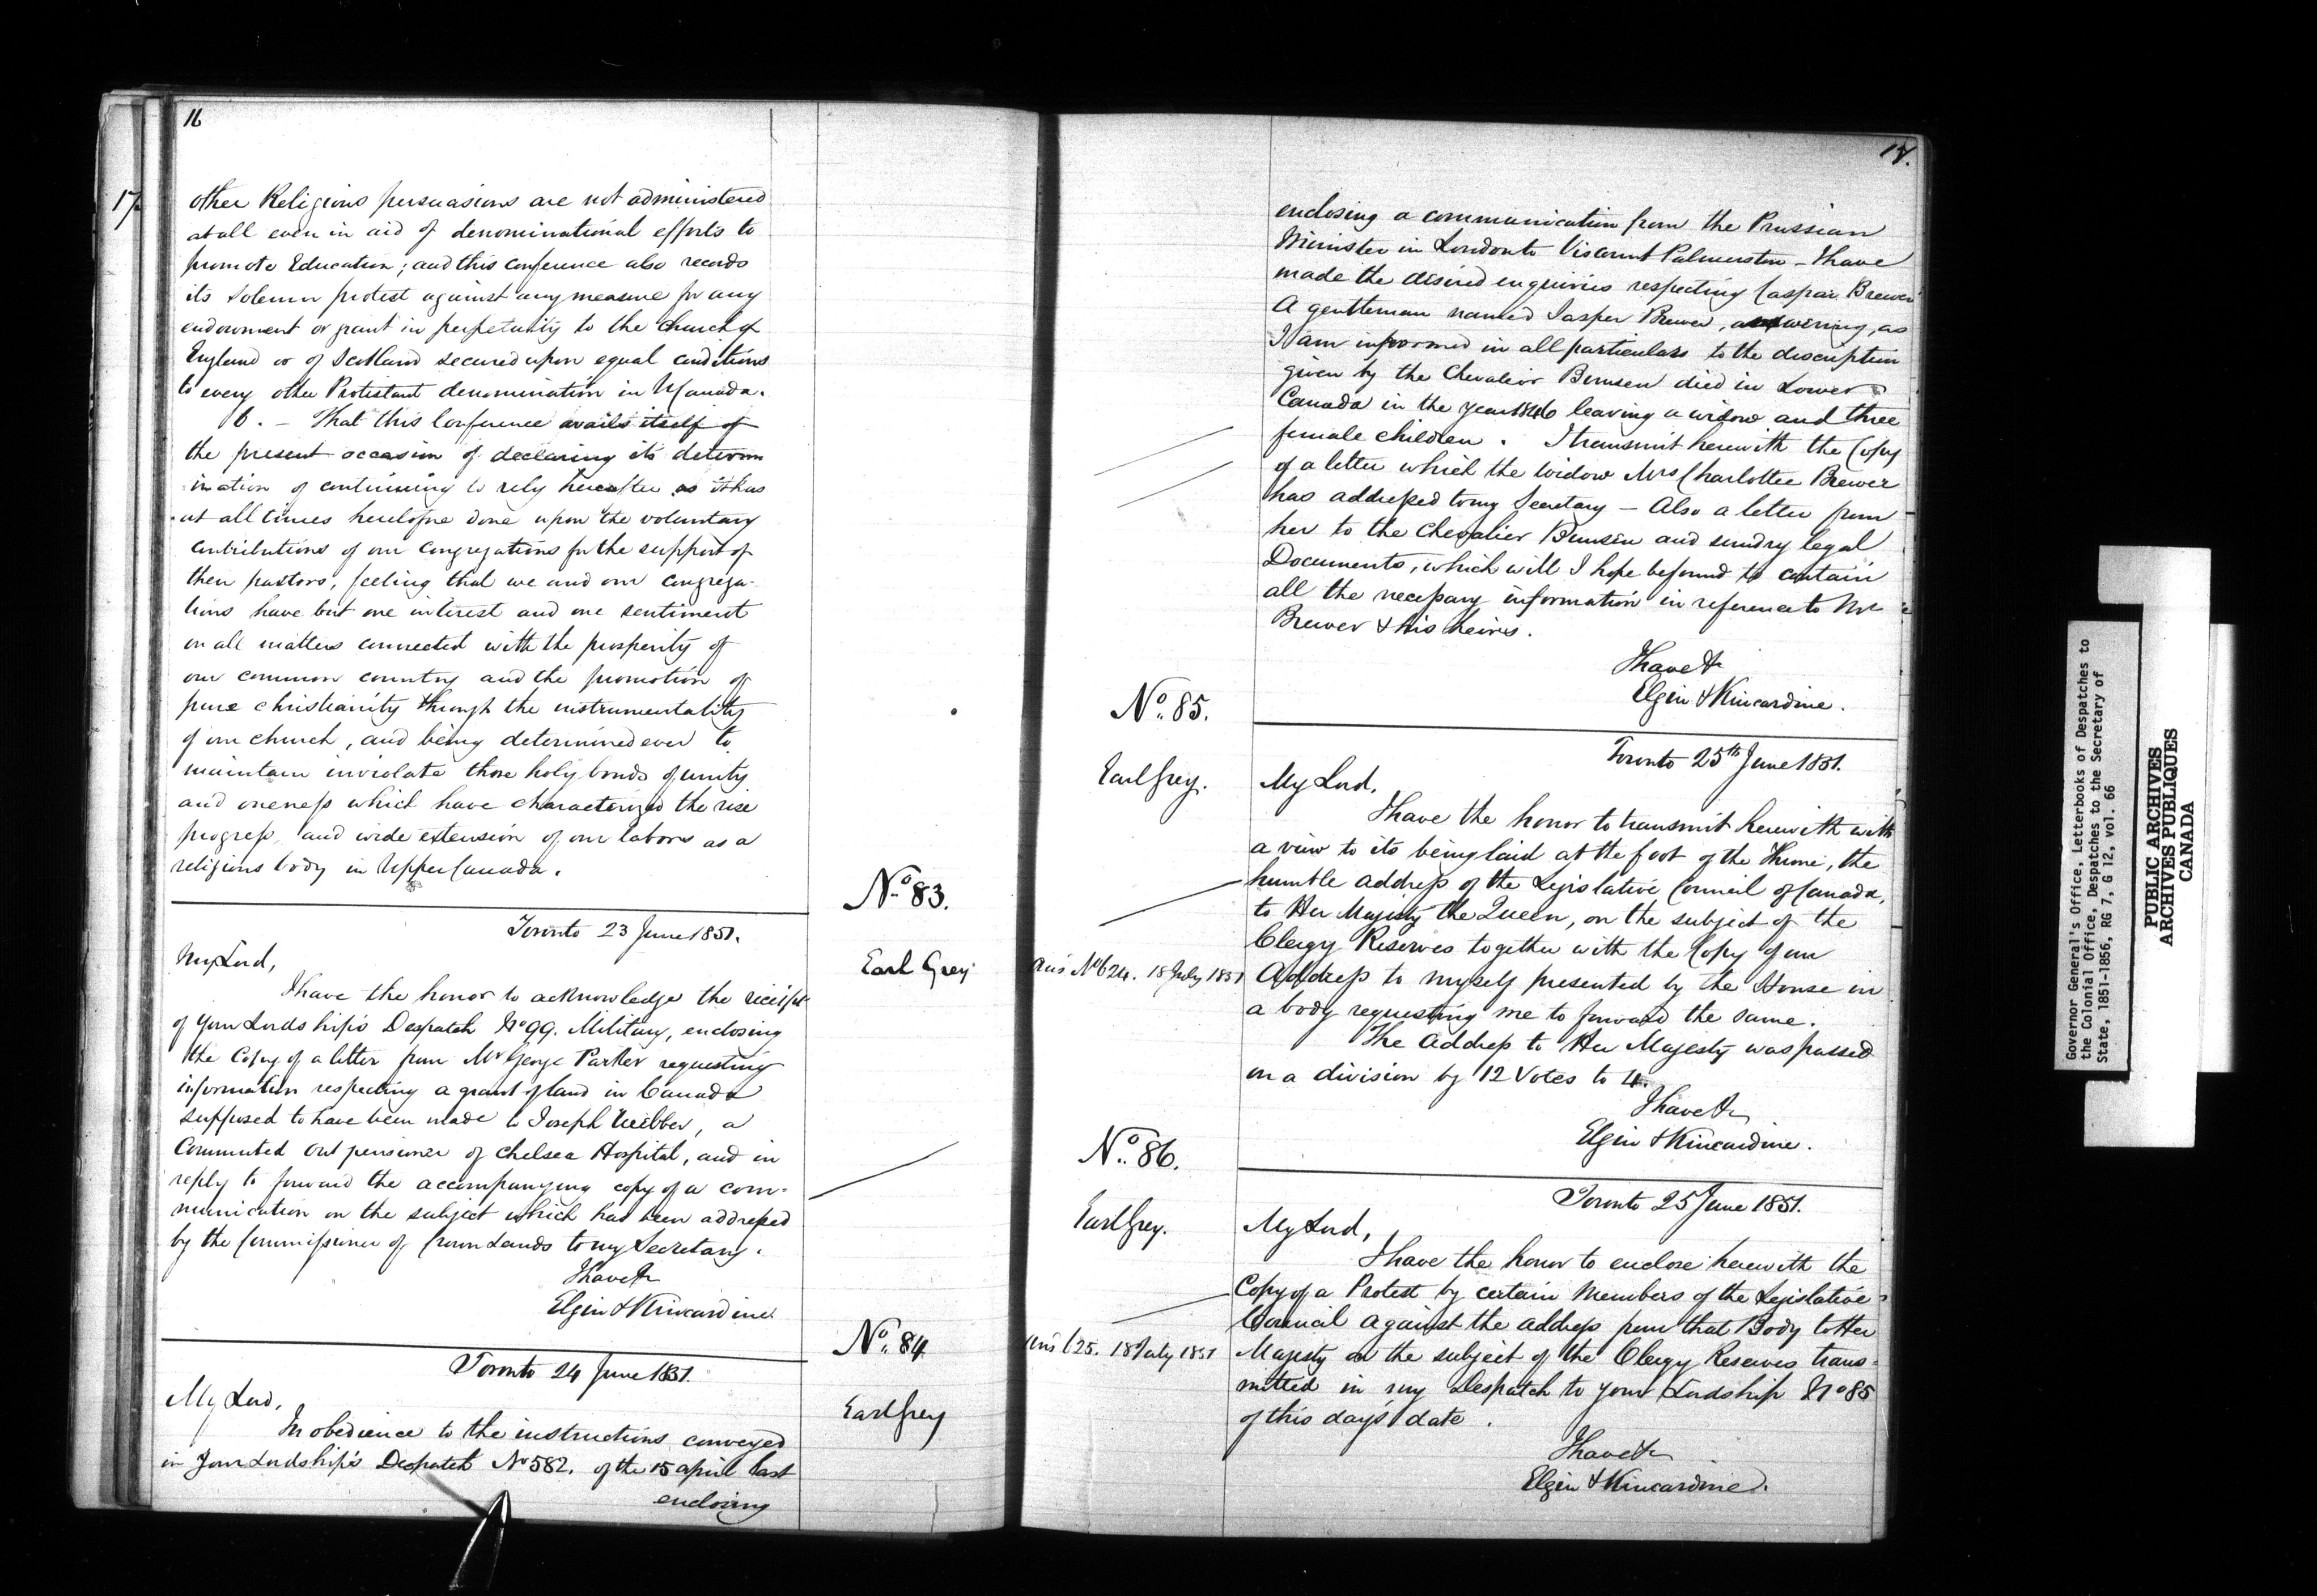 16
17
other Religious persuasions are not administered
at all even in aid of denominational efforts to
promote Education; and this conference also records
its solemn protest against any measure for any
endowment or grant in perpetuity to the church of
England or of Scotland secured upon equal conditions
to every other Protestant denomination in U Canada.
6. – That this Conference avails itself of
the present occasion of declaring its determ
ination of continuing to rely hereafter as it has
at all times heretofore done upon the voluntary
contributions of our congregations for the support of
their pastors, feeling that we and our congrega-
tions have but one interest and one sentiment
in all matters connected with the prosperity of
our common country and the promotion of
pure christianity through the instrumentality
of our church, and being determined ever to
maintain inviolate those holy bonds of unity
and oneness which have characterized the rise
progress, and wide extension of our labors as a
religious body in Upper Canada.
No. 83.
Toronto 23 June 1851.
Earl Grey
My Lord,
I have the honor to acknowledge the receipt
of Your Lordship's Despatch No 99. Military, enclosing
the Copy of a letter from Mr George Parker requesting
information respecting a grant of land in Canada
supposed to have been made to Joseph Webber, a
Commuted Out pensioner of Chelsea Hospital, and in
reply to forward the accompanying copy of a com-
munication on the subject which has been addressed
by the Commissioner of Crown Lands to my Secretary.
I have &c
Elgin & Kincardine
No. 84
Toronto 24 June 1851.
Earl Grey
My Lord,
In obedience to the instructions conveyed
in Your Lordship's Despatch No 582. of the 15 april last
enclosing
17.
enclosing a communication from the Prussian
Minister in London to Viscount Palmerston – I have
made the desired enquiries respecting Caspar Brewer
A gentleman named Jasper Brewer, answering, as
I am informed in all particulars to the description
given by the Chevalier Bunsen died in Lower
Canada in the year 1846 leaving a widow and three
female children. I transmit herewith the Copy
of a letter which the widow Mrs Charlotte Brewer
has addressed to my Secretary – Also a letter from
her to the Chevalier Bunsen and sundry legal
Documents, which will I hope be found to contain
all the necessary information in reference to Mr
Brewer & his heirs.
I have &c
Elgin & Kincardine.
No. 85.
Toronto 25th June 1851.
Earl Grey.
My Lord,
I have the honor to transmit herewith with
a view to its being laid at the foot of the Throne, the
humble address of the Legislative Council of Canada,
to Her Majesty the Queen, on the subject of the
Clergy Reserves together with the Copy of an
Ans No 624. 18 July 1851
Address to myself presented by the House in
a body requesting me to forward the same.
The address to Her Majesty was passed
on a division by 12 Votes to 4.
I have &c
Elgin & Kincardine.
No. 86.
Toronto 25 June 1851.
Earl Grey.
My Lord,
I have the honor to enclose herewith the
Copy of a Protest by certain Members of the Legislative
Council against the address from that Body to Her
Ans 625. 18 July 1851
Majesty on the subject of the Clergy Reserves trans-
mitted in my Despatch to your Lordship No 85
of this day's date.
I have &c
Elgin & Kincardine.
Governor General's Office, Letterbooks of Despatches to
the Colonial Office, Despatches to the Secretary of
State, 1851-1856, RG 7, G 12, vol. 66
PUBLIC ARCHIVES
ARCHIVES PUBLIQUES
CANADA